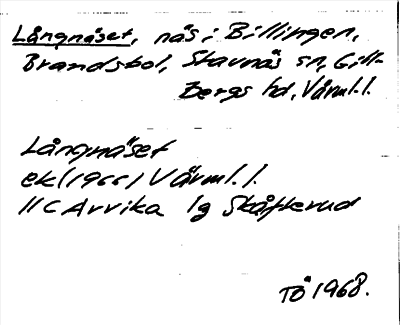 Långnäset, näs i Billingen,
Brandsbol, Stavnäs sn, Gill-
bergs hd, Värml. l.
Långnäset
ek (1966) Värml. l.
11C Arvika lg Skåfterud
Tö 1968.